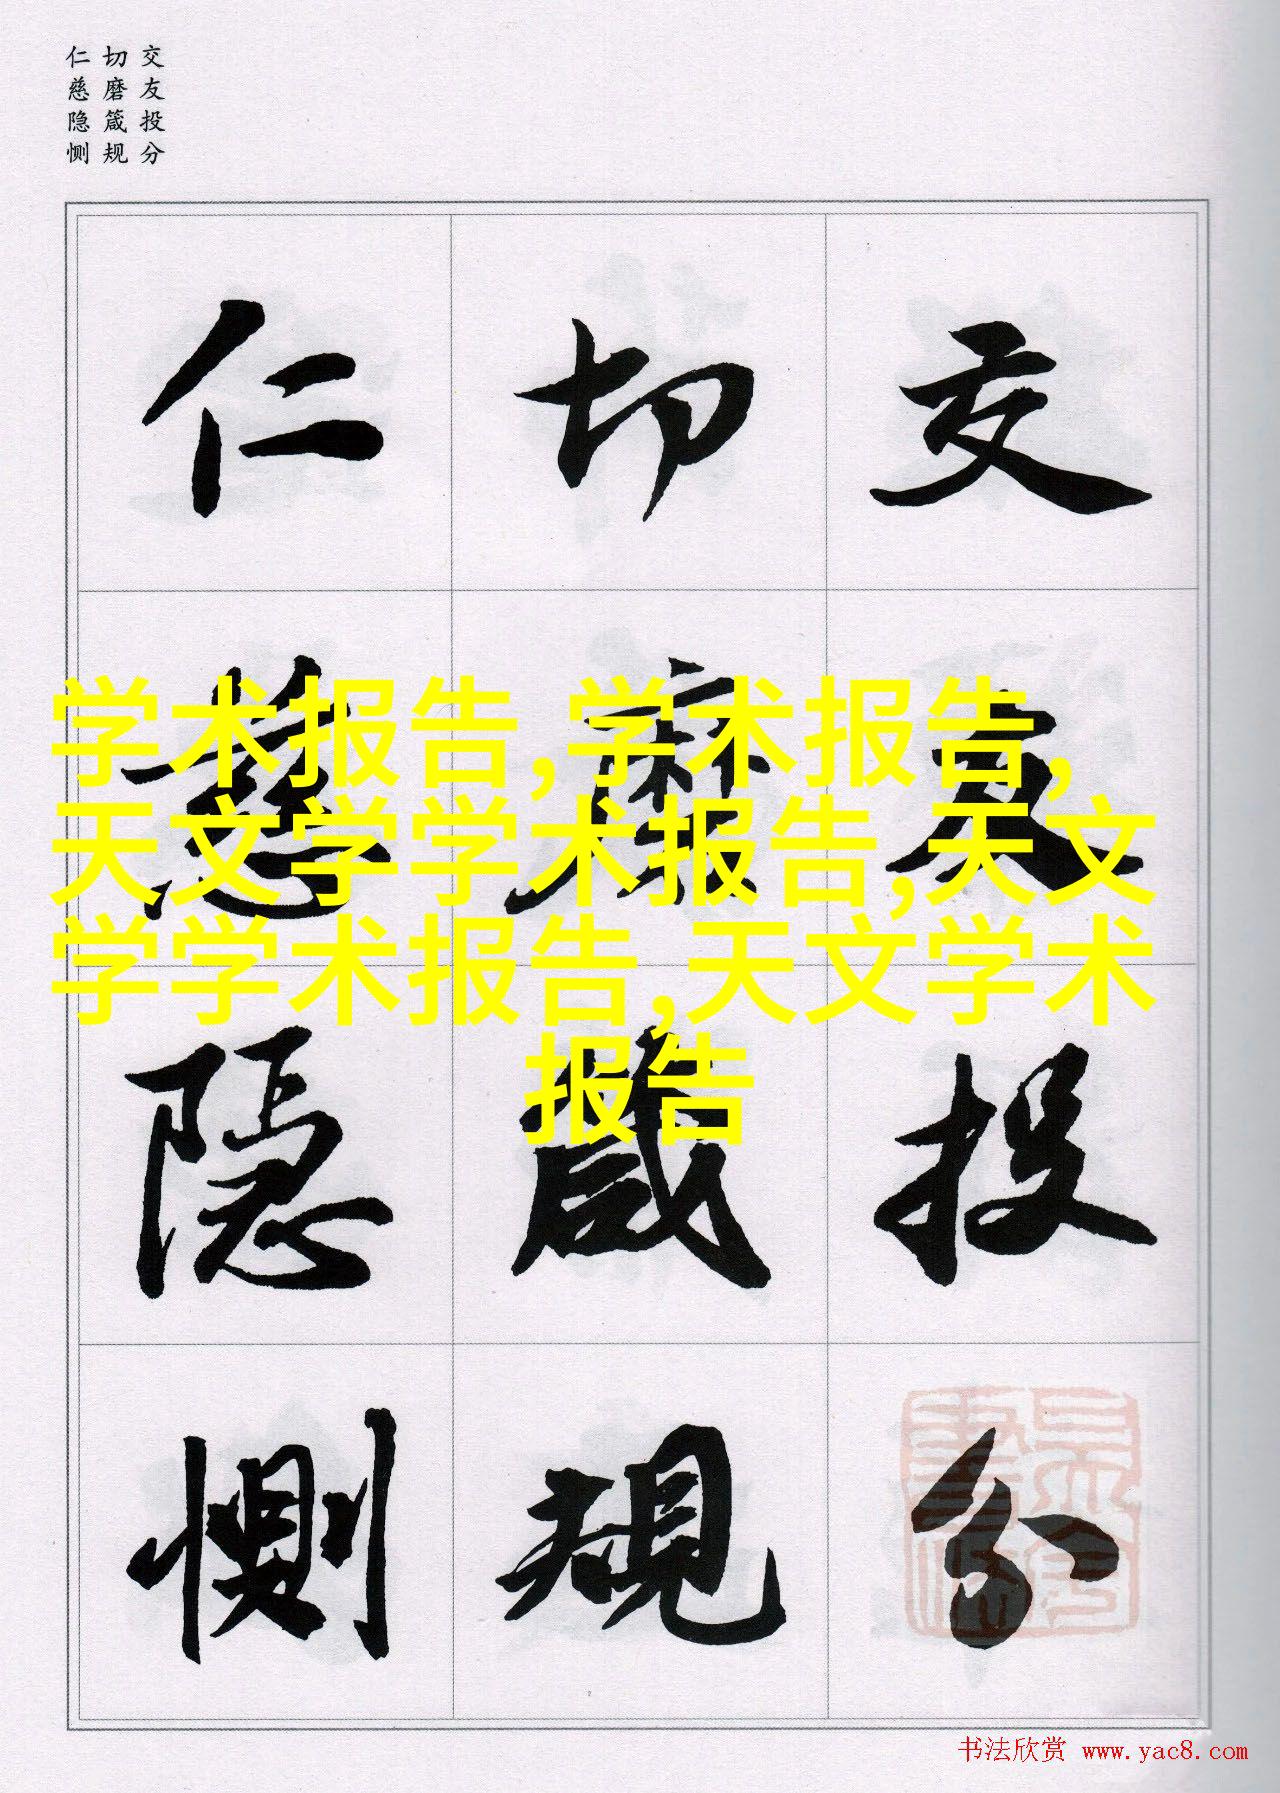 交友投分
切磨箴规
仁慈隐恻
交友投分
切磨箴規
仁慈隱惻
学术报告,学术报告,
天文学学术报告,天文
学学术报告,天文学术
报告
书法欣赏 www.yac8.com